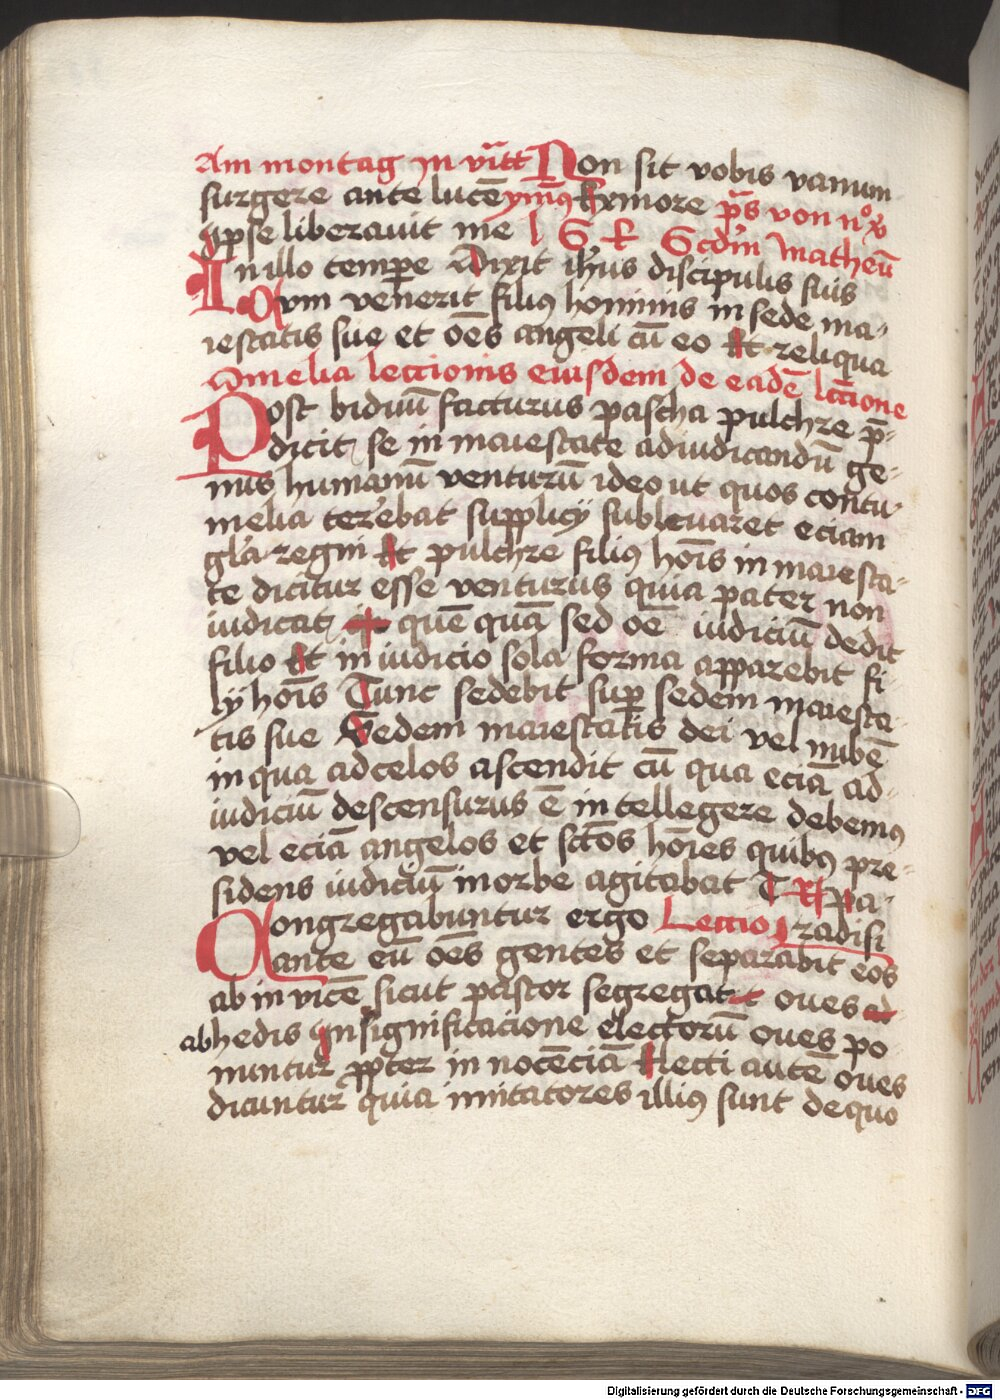 Am montag in vītt Non sit vobis vanum
surgere ante lucē ymn9 Ex more pˢs von nͦ x
ipse liberavit me l G R Scdm̄ Matheū
In illo tempe̅ Dixit ih̅us discipulis suis
Cum venerit filiꝰ hominis in sede ma-
iestatis sue et oēs angeli cū eo Et reliqua
Omelia leccionis eiusdem de eadē lcc̄ione
Post biduū facturus pascha pulchre p̄-
dicit se in maiestate adiudicandū ge-
nus humanū venturū ideo ut quos contu-
melia terebat supplicij sublevaret eciam
gl̄a regni Et pulchre filiꝰ hoīs in maiesta-
te dicitur esse venturus quia pater non
iudicat quēquā sed oē iudiciū dedit
filio Et in iudicio sola forma apparebit fi-
lij hoīs Tunc sedebit sup̄ sedem maiesta-
tis sue Sedem maiestatis dei vel nubē
in qua ad celos ascendit cū qua eciā ad-
iudiciū descensurus ē intellegere debemꝰ
vel eciā angelos et sc̄tos hōīes quibꝰ pre-
sidens iudiciū in orbe agitabat T R Pa-
Congregabuntur ergo Leccio radisi
ante eū oēs gentes et separabit eos
ab invicē sicut pastor segregat oves
ab hedis In significacione electorū oves po
nuntur ꝓpter innocēciā Electi autē oves
dicuntur quia imitatores illiꝰ sunt de quo
Digitalisierung gefördert durch die Deutsche Forschungsgemeinschaft - DFG